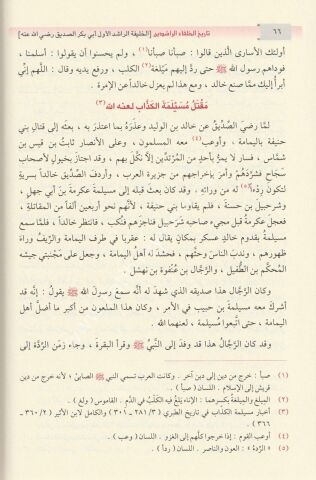 ٦٦ تاريخ الخلفاء الراشدين [الخليفة الراشد الأول أبي بكر الصديق رضي الله عنه]
أولئك الأسارى الذين قالوا : صبأنا صبأنا(١) ، ولم يحسنوا أن يقولوا : أسلمنا ،
فوداهم رسول الله ﷺ حتى ردَّ إليهم مِيْلَغة(٢) الكلب ، ورفع يديه وقال : اللهم إني
أبرأ إليك ممَّا صنع خالد ، ومع هذا لم يعزل خالداً عن الإمرة .
مَقْتَلُ مُسَيْلِمَةَ الكَذَّابِ لعنه الله(٣)
لمَّا رضيَ الصِّدِّيق عن خالد بن الوليد وعذرَهُ بما اعتذر به ، بعثه إلى قتال بني
حنيفة باليمامة ، وأوعب(٤) معه المسلمون ، وعلى الأنصار ثابت بن قيس بن
شمَّاس ، فسار لا يمرُّ بأحدٍ من المرْتدِّين إلاَّ نكَّل بهم ، وقد اجتاز بخيولٍ لأصحاب
سَجَاح فشرَّدَهُمْ وأمرَ بإخراجهم من جزيرة العرب ، وأردف الصِّدِّيق خالداً بسريةٍ
لتكون رِدْءاً(٥) له من ورائه ، وقد كان بعث قبله إلى مسيلمة عكرمة بنَ أبي جهل ،
وشرحبيل بن حسنة ، فلم يقاوما بني حنيفة ، لأنَّهم نحو أربعين ألفاً من المقاتلة ،
فعجلَ عكرمةُ قبل مجيء صاحبه شرحبيل فناجزهم فنُكب ، فانتظر خالداً ، فلمَّا سمع
مسيلمةُ بقدوم خالدٍ عسكر بمكانٍ يقال له : عقربا في طرف اليمامة والرِّيف وراءَ
ظهورهم ، وندبَ الناسَ وحثَّهم ، فحشدَ له أهلُ اليمامة ، وجعل على مُجَنبتي جيشه
المُحكَّم بن الطُّفيل ، والرَّجَّال بن عُنْفُوة بن نهشل .
وكان الرَّجَّال هذا صديقه الذي شهدَ له أنه سمعَ رسول الله ﷺ يقولُ : إنَّه قد
أشركَ معه مسيلمة بن حبيب في الأمر ، وكان هذا الملعون من أكبر ما أضلَّ أهل
اليمامة ، حتى اتبعوا مُسيلمة ، لعنهما الله .
وقد كان الرَّجَّال هذا قد وفدَ إلى النَّبيِّ ﷺ وقرأ البقرة ، وجاء زَمَن الرِّدَّة إلى
(١) صبأ : خرج من دين إلى دين آخر . وكانت العرب تسمي النبي ﷺ الصابئ ؛ لأنه خرج من دين
قريش إلى الإسلام . اللسان ( صبأ ) .
(٢) الميلغ والميلغة بكسرهما : الإناء يلغ فيه الكلب في الدم . القاموس ( ولغ ) .
(٣) أخبار مسيلمة الكذاب في تاريخ الطبري ( ٣/ ٢٨١ - ٣٠١ ) والكامل لابن الأثير ( ٢/ ٣٦٠ -
٣٦٦ ) .
(٤) أوعب القوم : إذا خرجوا كلُّهم إلى الغزو . اللسان ( وعب ) .
(٥) « الرِّدْءُ » : العون والناصر . اللسان ( ردأ ) .